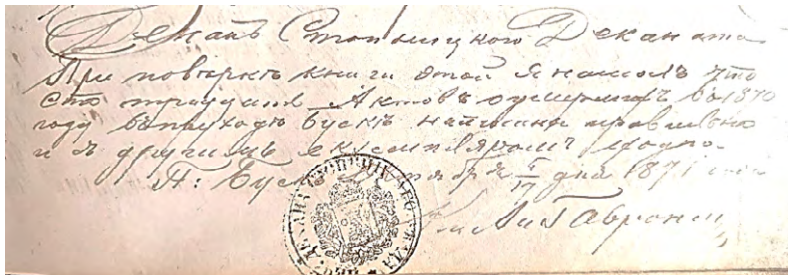 Деканъ Стопницкого Деканата
При повѣркѣ книги этой я нашолъ что
сто тридцать Актовъ умершихъ въ 1870
году въ приходѣ Бускъ написаны правильно
и съ другимъ екземпляромъ сходно.
П: Бускъ 5/17 дня 1871